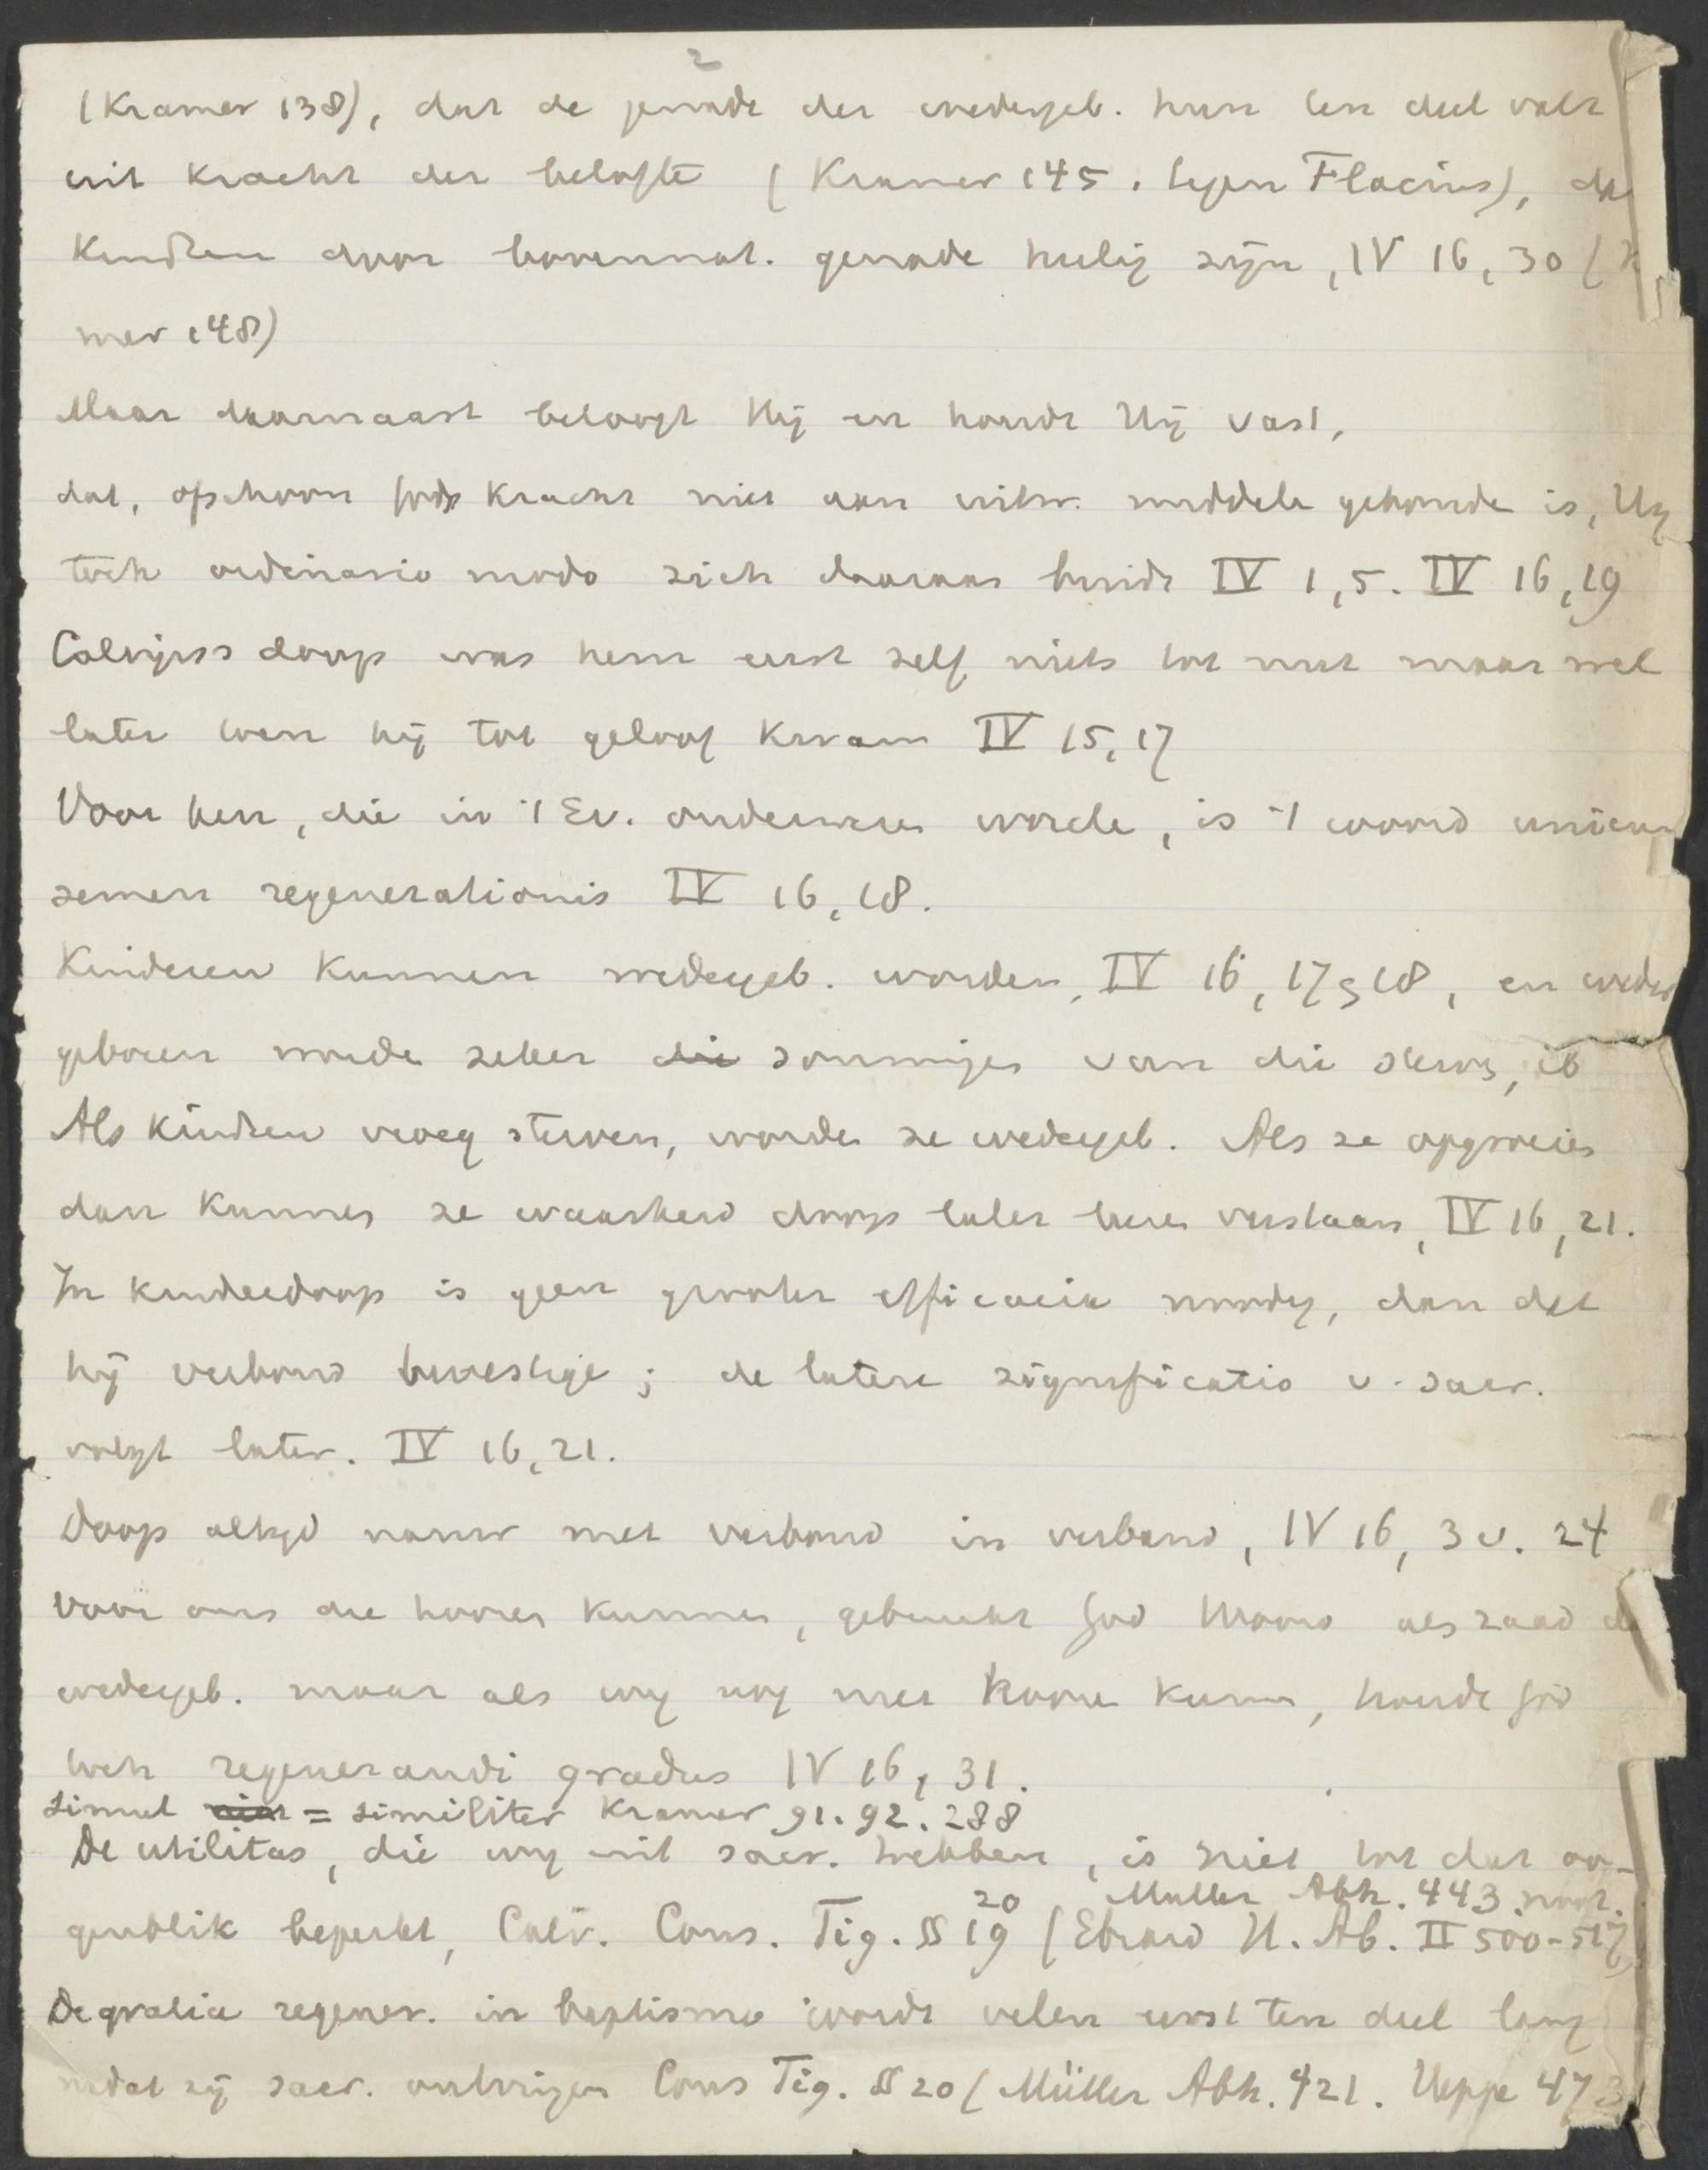 2
(Kramer 138), dat de genade der wedergeb. hun ten deel valt
uit kracht der belofte (Kramer 145. tegen Flacius), da
Kindren door bovennat. genade heilig zijn, IV 16, 30 (K
mer 148)
Maar daarnaast betoogt Hij en houdt Hij vast,
dat, ofschoon Gods kracht niet aan uitw. middele gebonde is, Hij
toch ordinario modo zich daaraan bindt IV 1,5. IV 16,19
Calvijns doop was hem eerst zelf niets tot nut maar wel
later toen hij tot geloof kwam IV 15, 17
Voor hen, die in 't Ev. onderwezen worde, is 't woord unicum
semen regenerationis IV 16, 18.
Kinderen kunnen wedergeb. worden, IV 16, 17 18, en weder
geboren worde zeker die sommigen van die sterv, ib
Als kindren vroeg sterven, worden ze wedergeb. Als ze opgroeien
dan kunnen ze waarheid doops later leren verstaan, IV 16, 21.
In kinderdoop is geen groter efficacia nodig, dan dat
hij verbond bevestige; de latere significatio v. sacr.
volgt later. IV 16, 21.
Doop altijd nauw met verbond in verband, IV 16, 3 v. 24
Voor ons die horen kunnen, gebruikt God Woord als zaad d
wedergeb. maar als wij nog niet hoore kunn, houdt God
toch regenerandi gradus IV 16, 31.
simul niet = similiter Kramer 91. 92. 288
De utilitas, die wij uit sacr. hebben, is niet tot dat oo-
genblik beperkt, Calv. Cons. Tig. §§ 19 20 (Ebrard H. Ab. II 500-517,
Muller Abh. 443 noot.
De gratia regener. in baptismo wordt velen eerst ten deel lang
nadat zij sacr. ontvingen Cons Tig. §§ 20 (Müller Abh. 421. Heppe 473